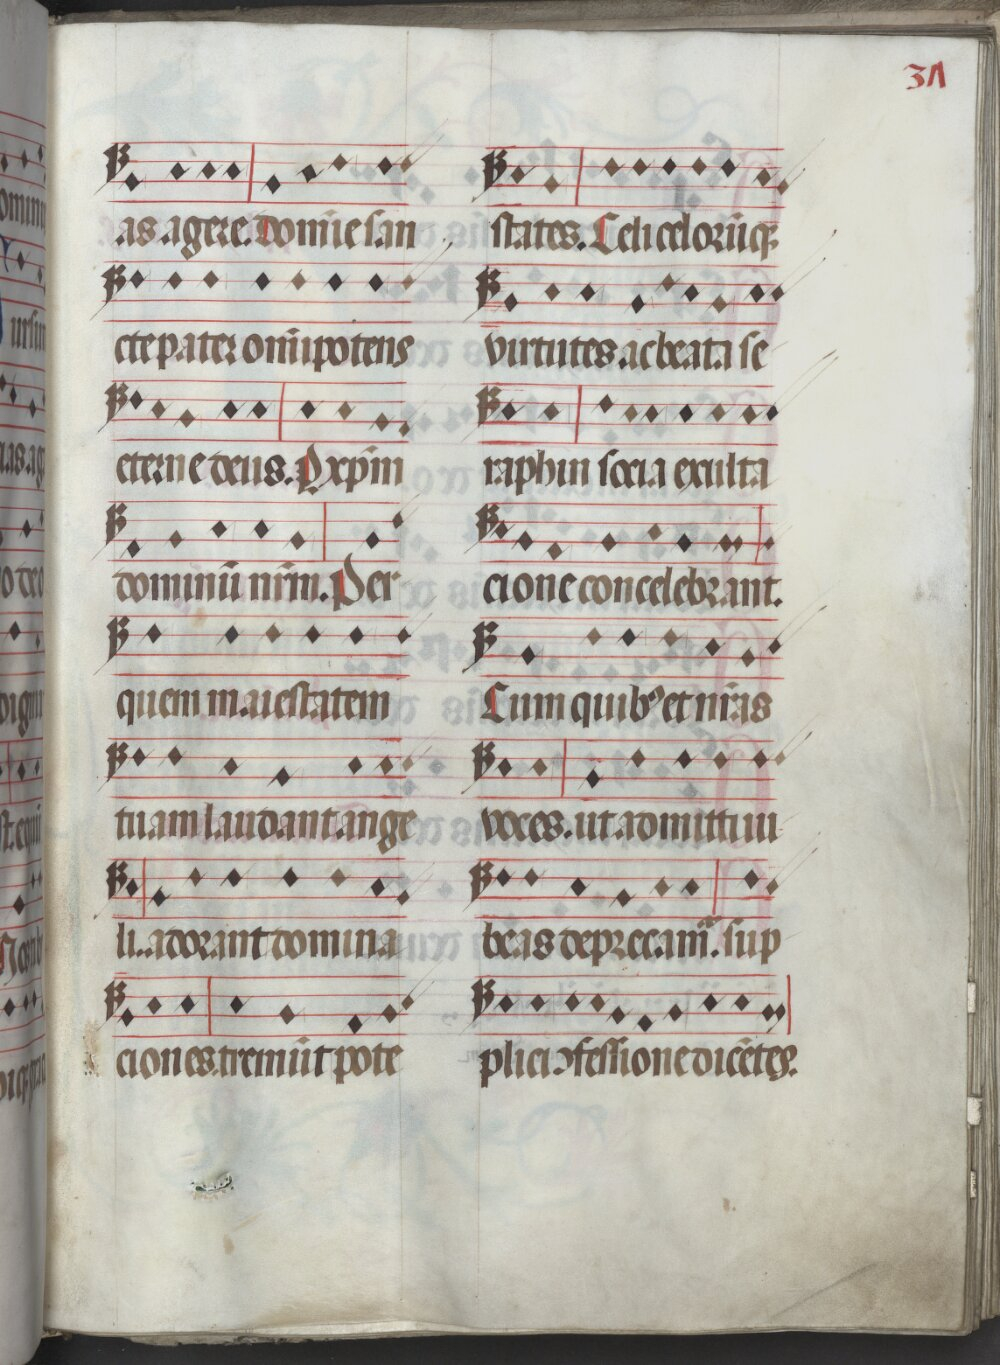 31
as agere. Domīe san
cte pater om̄ipotens
eterne deus. Pxp̄m
dominū nr̄m. Per
quem maiestatem
tuam laudant ange
li. adorant domina
ciones. tremūt pote
states. Celi celorūq̄
virtutes. ac beata se
raphin socia exulta
cione concelebrant.
Cum quibꝰ et nr̄as
voces. ut admitti iu
beas deprecam̄. sup
plici ↄfessione dicētes.